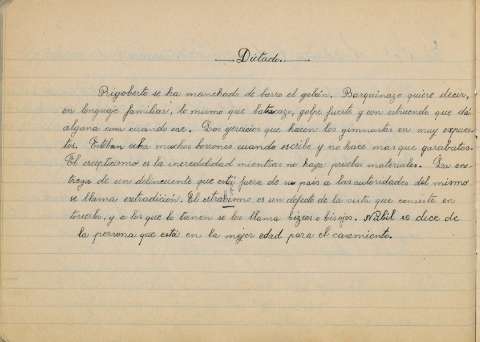 Dictado.
Rigoberto se ha manchado de barro el gabán. Barquinazo quiere decir,
en lenguaje familiar, lo mismo que batacazo, golpe fuerte y con estruendo que dá
alguna cuando cae. Los ejercicios que hacen los gimnastas es muy expues-
tos. Esteban echa muchos borrones cuando escribe y no hace mas que garabatos.
El escepticismo es la incredulidad mientras no haya pruebas materiales. La en-
trega de un delincuente que está fuera de su pais a las autoridades del mismo
se llama extradición. El estrabismo es un defecto de la vista que consiste en
torcerla, y a los que lo tienen se les llama bizcos o bisojos. Núbil se dice de
la persona que está en la mejor edad para el casamiento.